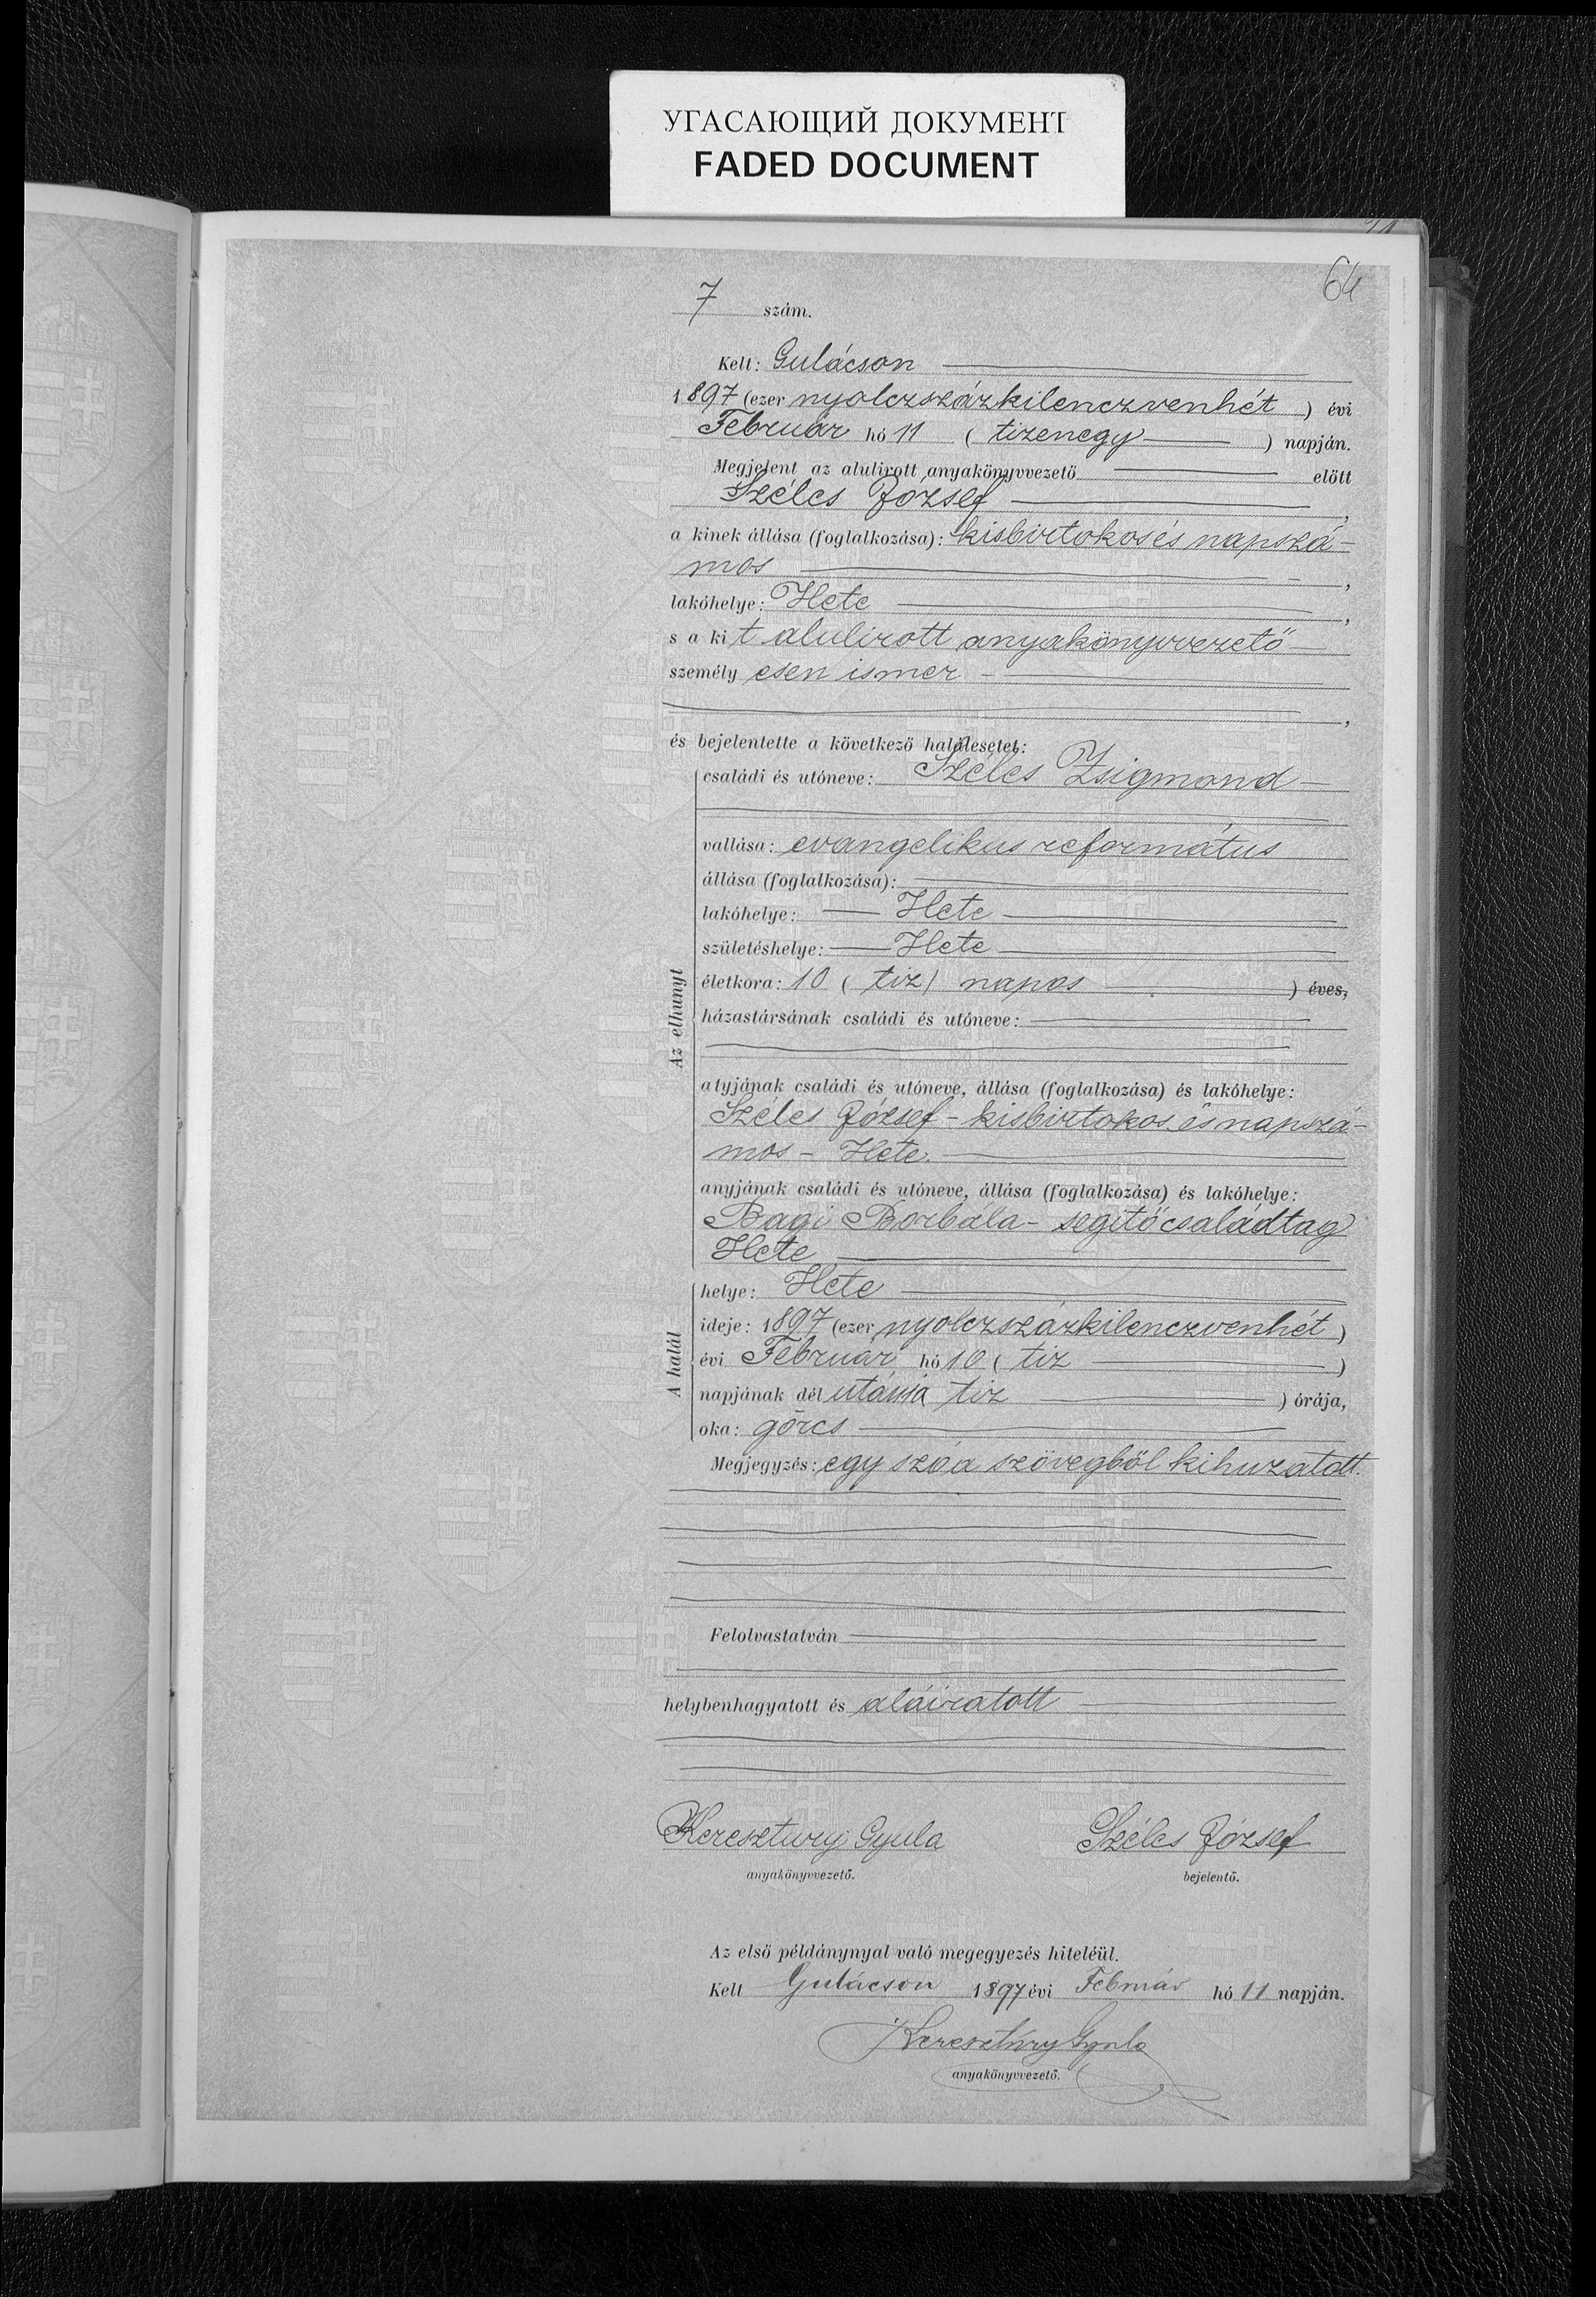 УГАСАЮЩИЙ ДОКУМЕНТ
FADED DOCUMENT
64
7 szám.
Kelt: Gulácson
1897 (ezer nyolczszázkilenczvenhét) évi
Február hó 11 (tizenegy) napján.
Megjelent az alulirott anyakönyvvezető előtt
Széles József,
a kinek állása (foglalkozása): kisbirtokos és napszá-
mos,
lakóhelye: Hete,
s a kit alulirott anyakönyvvezető
személyesen ismer
,
és bejelentette a következő halálesetet:
családi és utóneve: Széles Zsigmond
vallása: evangelikus református
állása (foglalkozása):
lakóhelye: Hete
születéshelye: Hete
életkora: 10 (tiz) napos ) éves,
házastársának családi és utóneve:
Az elhunyt
atyjának családi és utóneve, állása (foglalkozása) és lakóhelye:
Széles József - kisbirtokos és napszá-
mos - Hete.
anyjának családi és utóneve, állása (foglalkozása) és lakóhelye:
Bagi Borbála - segitő családtag
Hete
helye: Hete
ideje: 1897 (ezer nyolczszázkilenczvenhét)
évi Február hó 10 (tiz)
A halál
napjának délutánja tiz ) órája,
oka: görcs
Megjegyzés: egy szó a szövegből kihuzatott.
Felolvastatván
helybenhagyatott és aláiratott
Keresztury Gyula Széles József
anyakönyvvezető. bejelentő.
Az első példánynyal való megegyezés hiteléül.
Kelt Gulácson 1897 évi Február hó 11 napján.
Keresztúry Gyula
anyakönyvvezető.